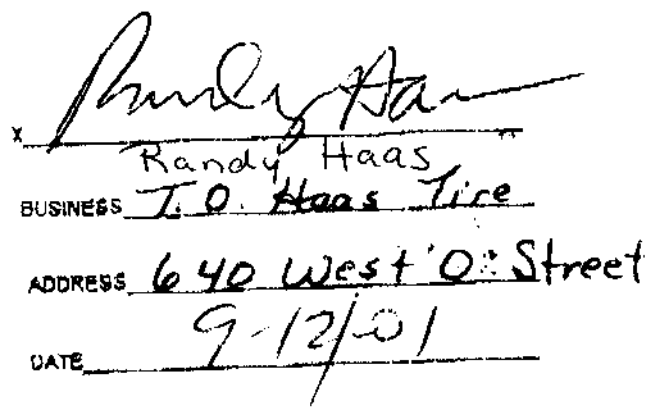 x Randy Haas
Randy Haas
BUSINESS T.O. Haas Tire
ADDRESS 640 West "O" Street
DATE 9-12-01